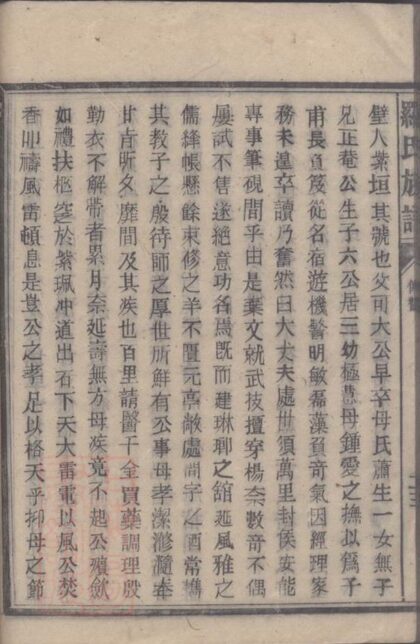 羅氏族譜
璧人業垣其號也父可大公早卒母氏蕭生一女無子
兄正菴公生子六公居三幼極慧母鍾愛之撫以爲子
甫長負笈從名宿遊機警明敏磊落負奇氣因經理家
務未遑卒讀乃奮然曰大丈夫處世須萬里封侯安能
專事筆硯間乎由是棄文就武技擅穿楊奈數奇不偶
屢試不售遂絶意功名焉旣而建琳瑯之舘延風雅之
儒絳帳懸餘束修之羊不匱元亭敞處問字之酒常攜
其教子之殷待師之厚世所鮮有公事母孝潔滫瀡奉
甘旨晰夕靡間及其疾也百里請醫千金買藥調理殷
勤衣不解帶者累月奈延壽無方母疾竟不起公殯斂
如禮扶柩窆於紫珮冲道出石下天大雷電以風公焚
香叩禱風雷頓息是豈公之孝足以格天乎抑母之節